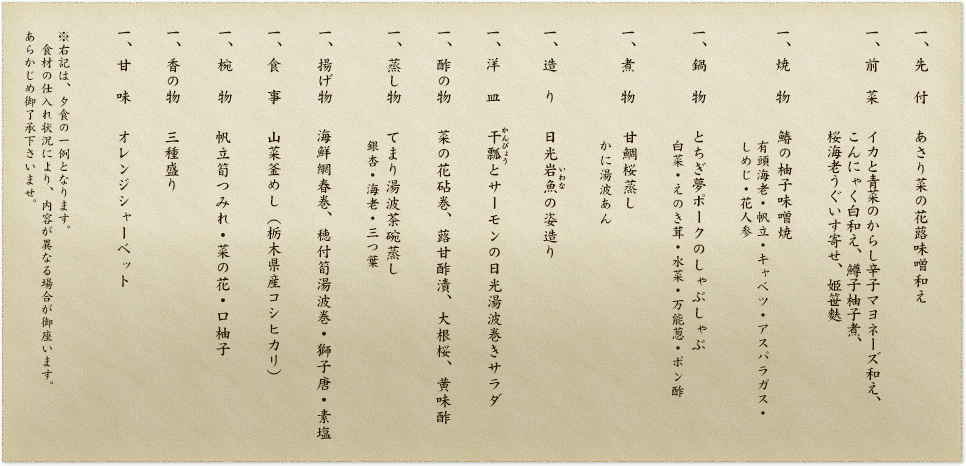 一、先 付 あさり菜の花蕗味噌和え
一、前 菜 イカと青菜のからし辛子マヨネーズ和え、
こんにゃく白和え、鱒子柚子煮、
桜海老うぐいす寄せ、姫笹麩
一、焼 物 鰆の柚子味噌焼
有頭海老・帆立・キャベツ・アスパラガス・
しめじ・花人参
一、鍋 物 とちぎ夢ポークのしゃぶしゃぶ
白菜・えのき茸・水菜・万能葱・ポン酢
一、煮 物 甘鯛桜蒸し
かに湯波あん
一、造 り 日光岩魚の姿造り
いわな
一、洋 皿 干瓢とサーモンの日光湯波巻きサラダ
かんぴょう
一、酢の物 菜の花砧巻、蕗甘酢漬、大根桜、黄味酢
一、蒸し物 てまり湯波茶碗蒸し
銀杏・海老・三つ葉
一、揚げ物 海鮮網春巻、穂付筍湯波巻・獅子唐・素塩
一、食 事 山菜釜めし（栃木県産コシヒカリ）
一、椀 物 帆立筍つみれ・菜の花・口柚子
一、香の物 三種盛り
一、甘 味 オレンジシャーベット
※右記は、夕食の一例となります。
食材の仕入れ状況により、内容が異なる場合が御座います。
あらかじめ御了承下さいませ。